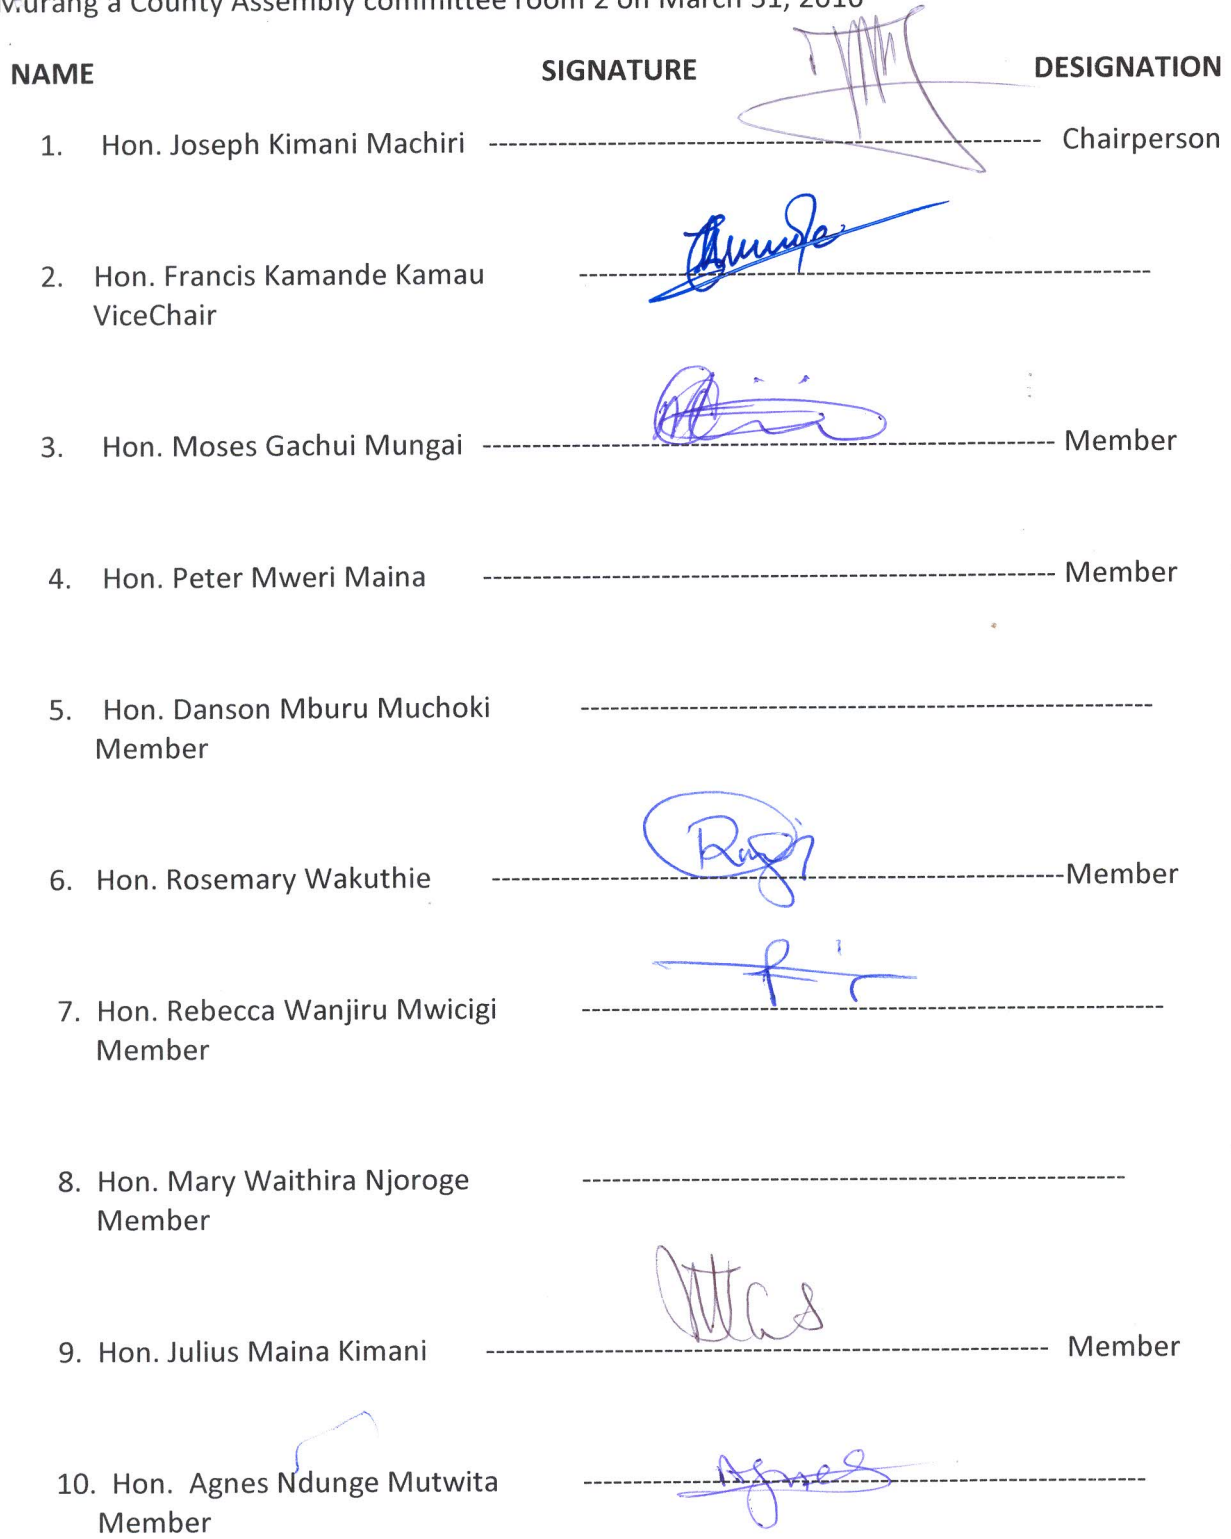 Murang'a County Assembly committee room 2 on March 31, 2016
NAME SIGNATURE DESIGNATION
1. Hon. Joseph Kimani Machiri ------------------------------------------------------- Chairperson
2. Hon. Francis Kamande Kamau ---------------------------------------------------------
ViceChair
3. Hon. Moses Gachui Mungai --------------------------------------------------------- Member
4. Hon. Peter Mweri Maina --------------------------------------------------------- Member
5. Hon. Danson Mburu Muchoki ---------------------------------------------------------
Member
6. Hon. Rosemary Wakuthie ---------------------------------------------------------Member
7. Hon. Rebecca Wanjiru Mwicigi ----------------------------------------------------------
Member
8. Hon. Mary Waithira Njoroge ------------------------------------------------------
Member
9. Hon. Julius Maina Kimani -------------------------------------------------------- Member
10. Hon. Agnes Ndunge Mutwita -------------------------------------------------------- Agnes
Member